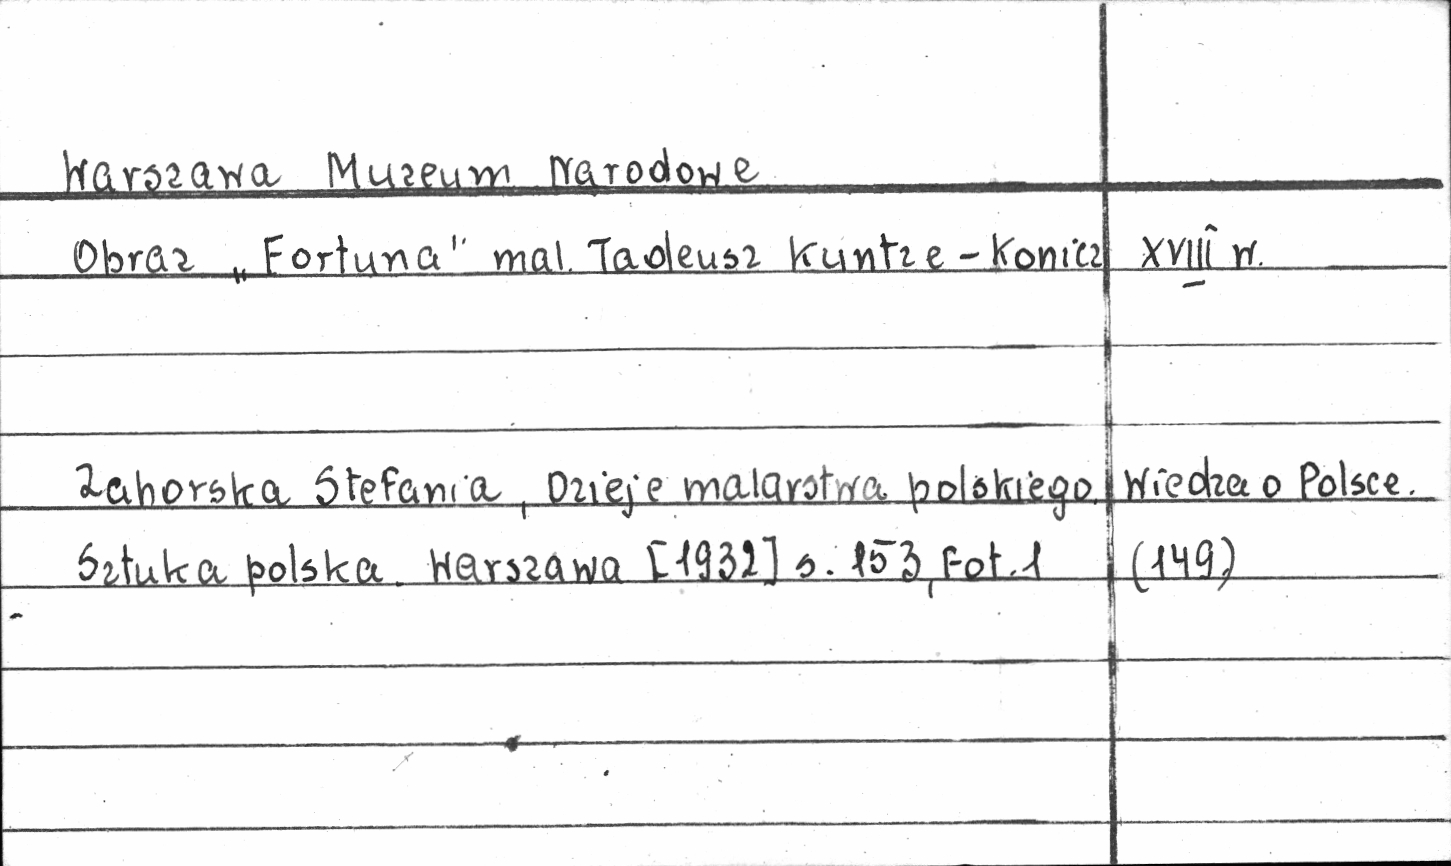 Warszawa Muzeum Narodowe
Obraz „Fortuna" mal. Tadeusz Kuntze - Konicz XVIII w.
Zahorska Stefania, Dzieje malarstwa polskiego. Wiedza o Polsce.
Sztuka polska. Warszawa [1932] s. 153, Fot. 1 (149)